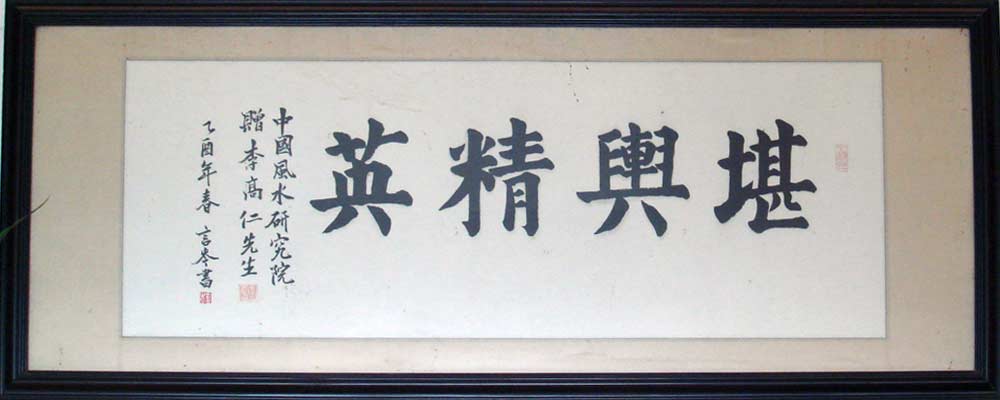 堪輿精英
中國風水研究院
贈李高仁先生
乙酉年春 言岑書